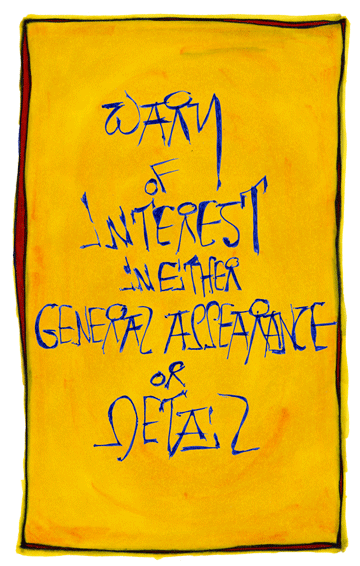 WARY
OF
INTEREST
IN EITHER
GENERAL APPEARANCE
OR
DETAIL